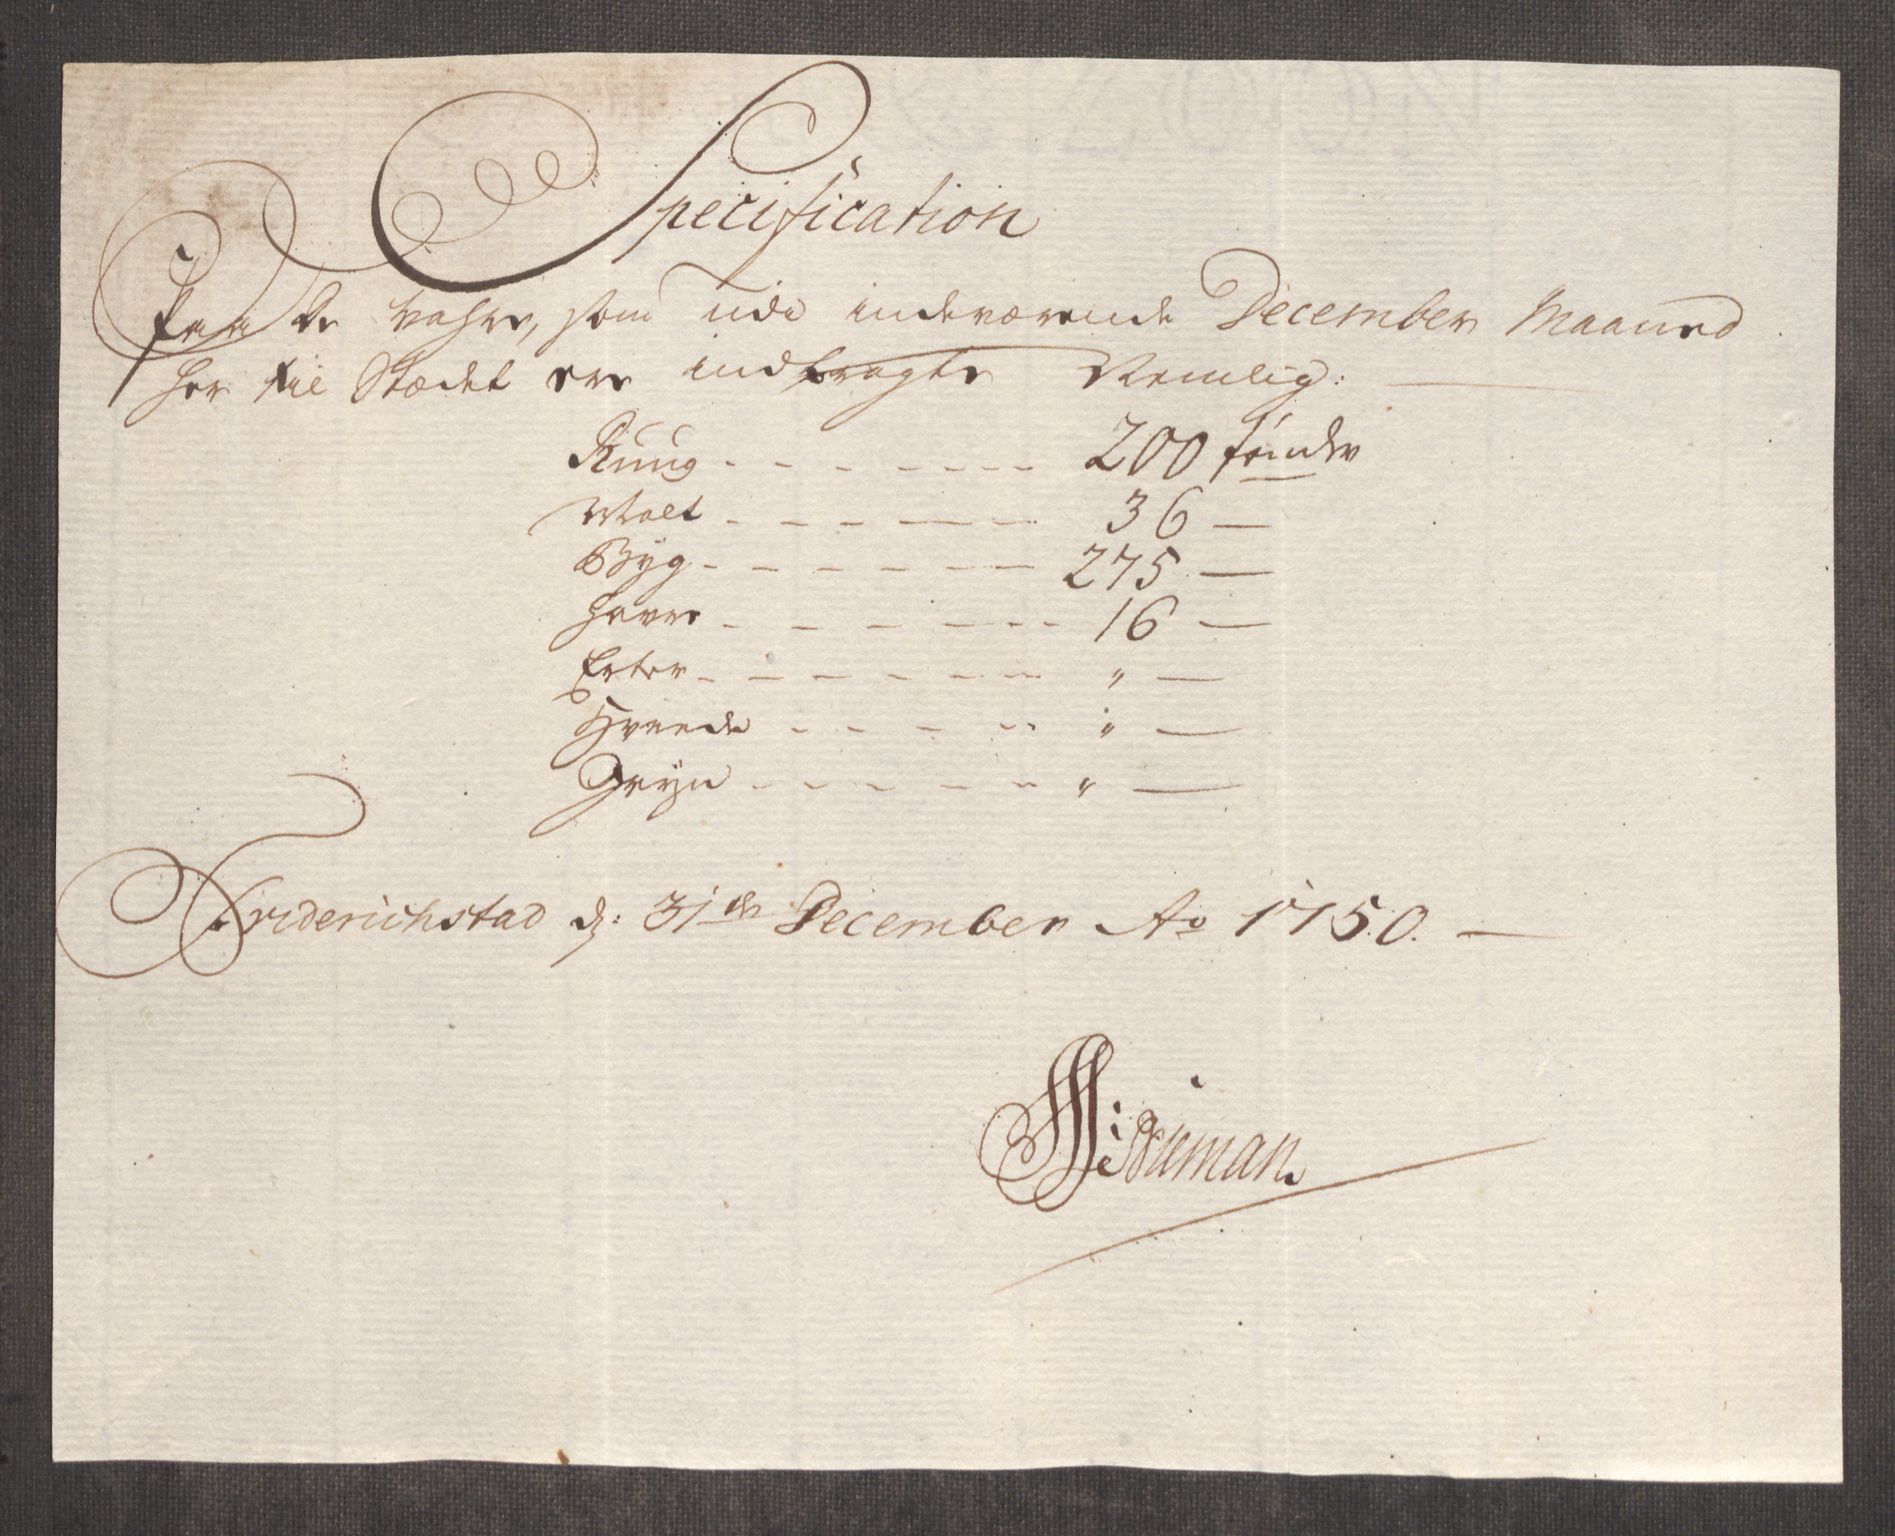 Specification
Paa de Vahre, som udi indeværende December Maaned
her til Stædet ere indbragte Nemlig:
Ruug - - - - - - - 200 tønder
Malt - - - - - - 36 —
Byg - - - - - - - 275 —
Havre - - - - - - - 16 —
Erter - - - - - - - " —
Hveede - - - - - " —
Gryn - - - - - - " —
Friderichstad d: 31de December Ao 1750. —